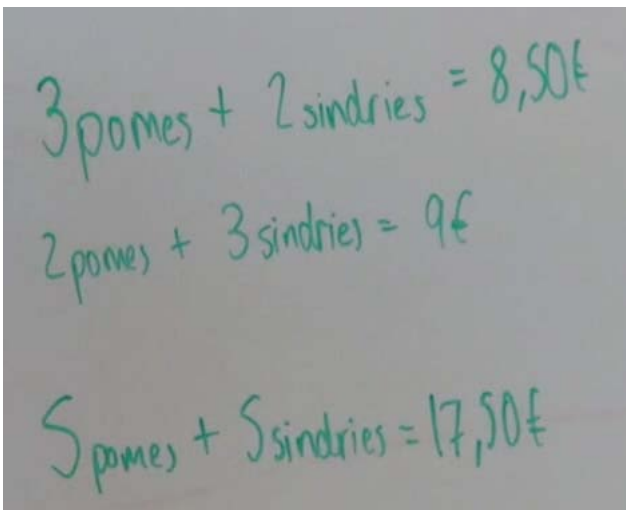 3 pomes + 2 sindries = 8,50€
2 pomes + 3 sindries = 9€
5 pomes + 5 sindries = 17,50€